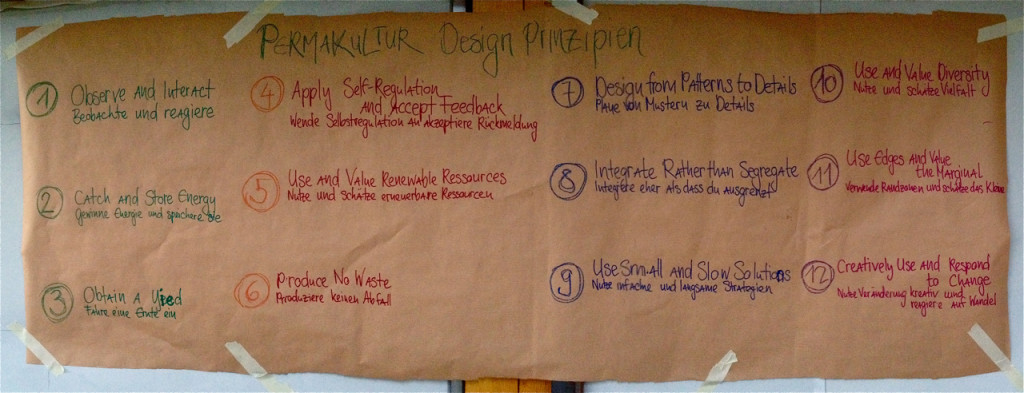 PERMAKULTUR Design Prinzipien
1 Observe and Interact
Beobachte und reagiere
2 Catch and Store Energy
Gewinne Energie und speichere sie
3 Obtain a Yield
Fahre eine Ernte ein
4 Apply Self-Regulation
and Accept Feedback
Wende Selbstregulation an akzeptiere Rückmeldung
5 Use and Value Renewable Ressources
Nutze und schätze erneuerbare Ressourcen
6 Produce No Waste
Produziere keinen Abfall
7 Design from Patterns to Details
Plane von Mustern zu Details
8 Integrate Rather than Segregate
Integriere eher als dass du ausgrenzt
9 Use Small and Slow Solutions
Nutze und langsame Strategien
10 Use and Value Diversity
Nutze und schätze Vielfalt
11 Use Edges and Value
the Marginal
Verwende Randzonen und schätze das Kleine
12 Creatively Use and Respond
to Change
Nutze Veränderung kreativ und
reagiere auf Wandel